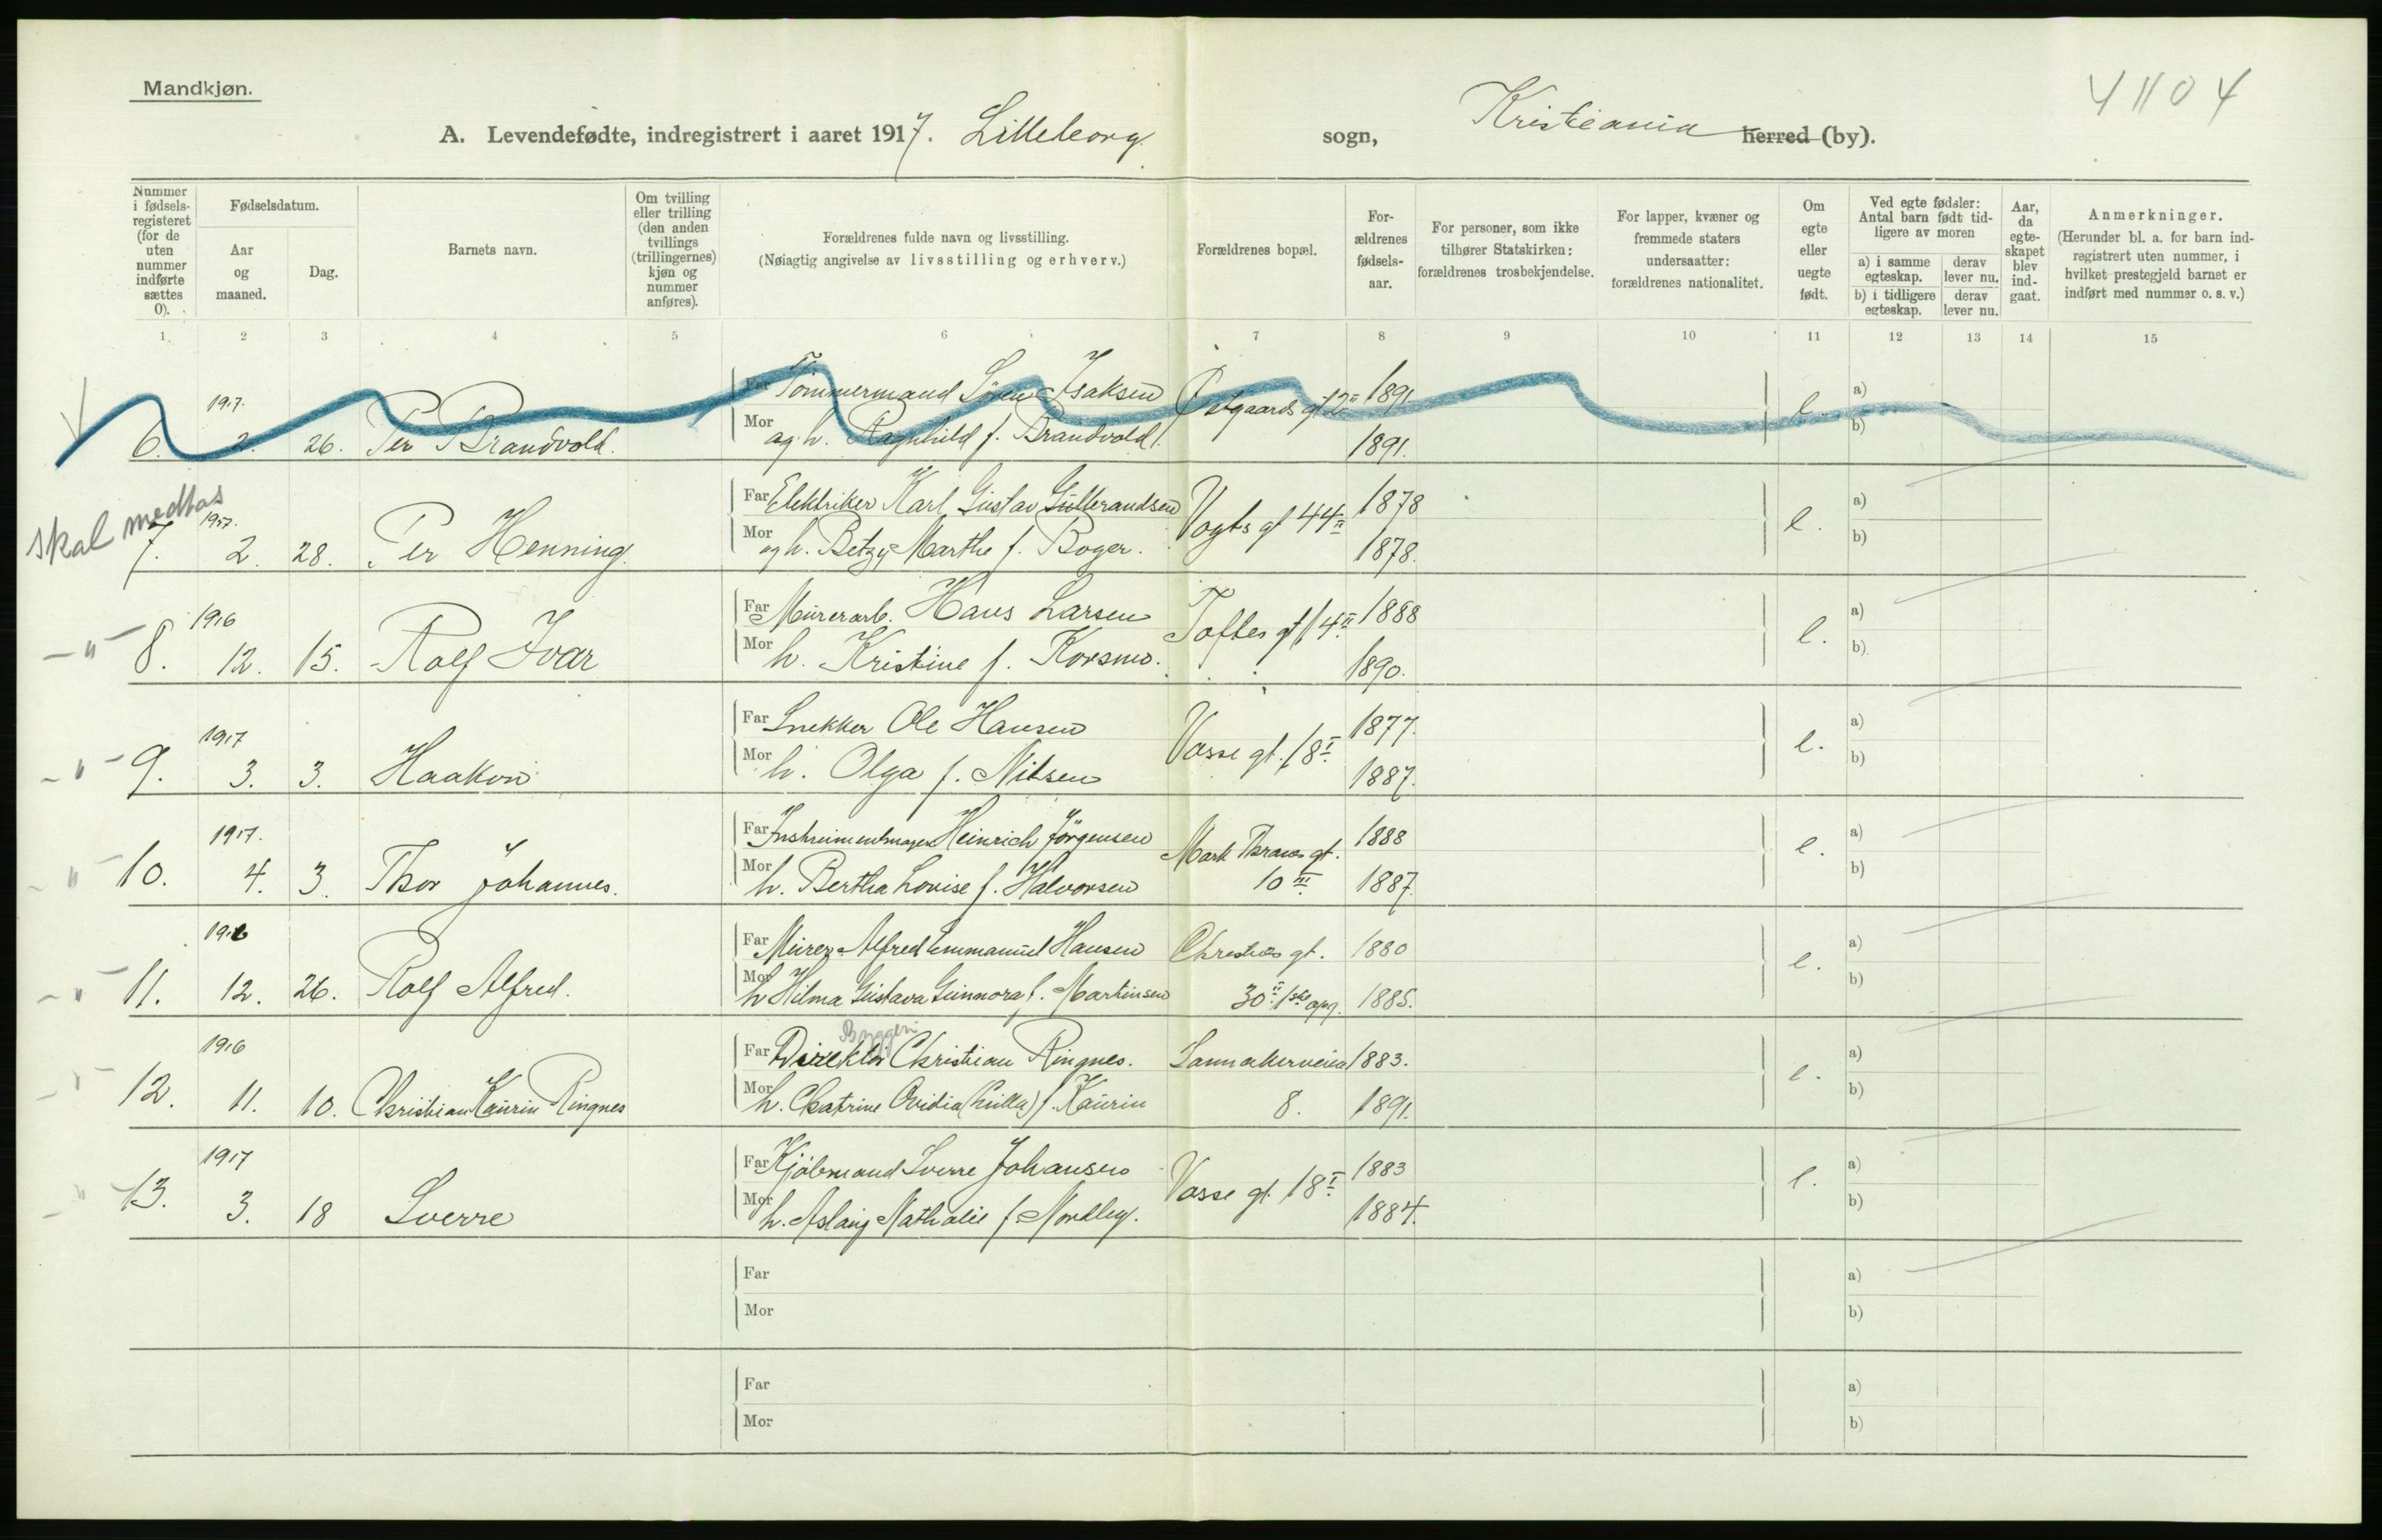 Mandkjøn.
4 1104
A. Levendefødte, indregistrert i aaret 1917. Lilleborg sogn, Kristiania herred (by).
Nummer i fødsels-registeret (for de uten nummer indførte sættes 0).
Fødselsdatum.
Aar og maaned.
Dag.
Barnets navn.
Om tvilling eller trilling (den anden tvillings (trillingernes) kjøn og nummer anføres).
Forældrenes fulde navn og livsstilling.
(Nøiagtig angivelse av livsstilling og erhverv.)
Forældrenes bopæl.
For-ældrenes fødsels-aar.
For personer, som ikke tilhører Statskirken: forældrenes trosbekjendelse.
For lapper, kvæner og fremmede staters undersaatter: forældrenes nationalitet.
Om egte eller uegte født.
Ved egte fødsler: Antal barn født tid-ligere av moren
a) i samme egteskap. derav lever nu.
b) i tidligere egteskap. derav lever nu.
Aar, da egte-skapet blev ind-gaat.
Anmerkninger.
(Herunder bl. a. for barn ind-registrert uten nummer, i hvilket prestegjeld barnet er indført med nummer o. s. v.)
1. 2 3 4 5 6 7 8 9 10 11 12 13 14 15
1917. Far Tømmermand Søren Isaksen 1891 a)
6. 2. 26. Per Brandvold. Mor og h. Ragnhild f. Brandvold. 1891. e. b)
skal medtas
1917. Far Elektriker Karl Gustav Gulbrandsen Vogts gt 44 II 1878 a)
7. 2. 28. Per Henning. Mor og h. Betzy Marthe f. Boger. 1878. e. b)
1916 Far Murerarb. Hans Larsen Toftes gt 14 II 1888 a)
– " – 8. 12. 15. Rolf Ivar Mor h. Kristine f. Korsmo. 1890. e. b)
1917 Far Snekker Ole Hansen Vosse gt. 18 I 1877. a)
– " – 9. 3. 3. Haakon Mor h. Olga f. Nilsen 1887. e. b)
1917. Far Instrumentmager Heinrich Jörgensen Mark Thranes gt. 1888 a)
– " – 10. 4. 3. Thor Johannes. Mor h. Bertha Lovise f. Halvorsen 10 III 1887. e. b)
1916 Far Murer Alfred Emmanuel Hansen Chresties gt. 1880 a)
– " – 11. 12. 26. Rolf Alfred. Mor h Hilma Gustava Gunnora f. Martinsen 30 II 1ste opg. 1885. e. b)
Bryggeri
1916 Far Direktör Christian Ringnes. Sannakerveien 1883. a)
– " – 12. 11. 10. Christian Kaurin Ringnes Mor h. Chatrine Ovidia (Lulla) f. Kaurin 8. 1891. e. b)
1917 Far Kjöbmand Sverre Johansen Vosse gt. 18 I 1883 a)
– " – 13. 3. 18 Sverre Mor h. Aslaug Nathalie f. Nordby. 1884. e. b)
Far a)
Mor b)
Far a)
Mor b)